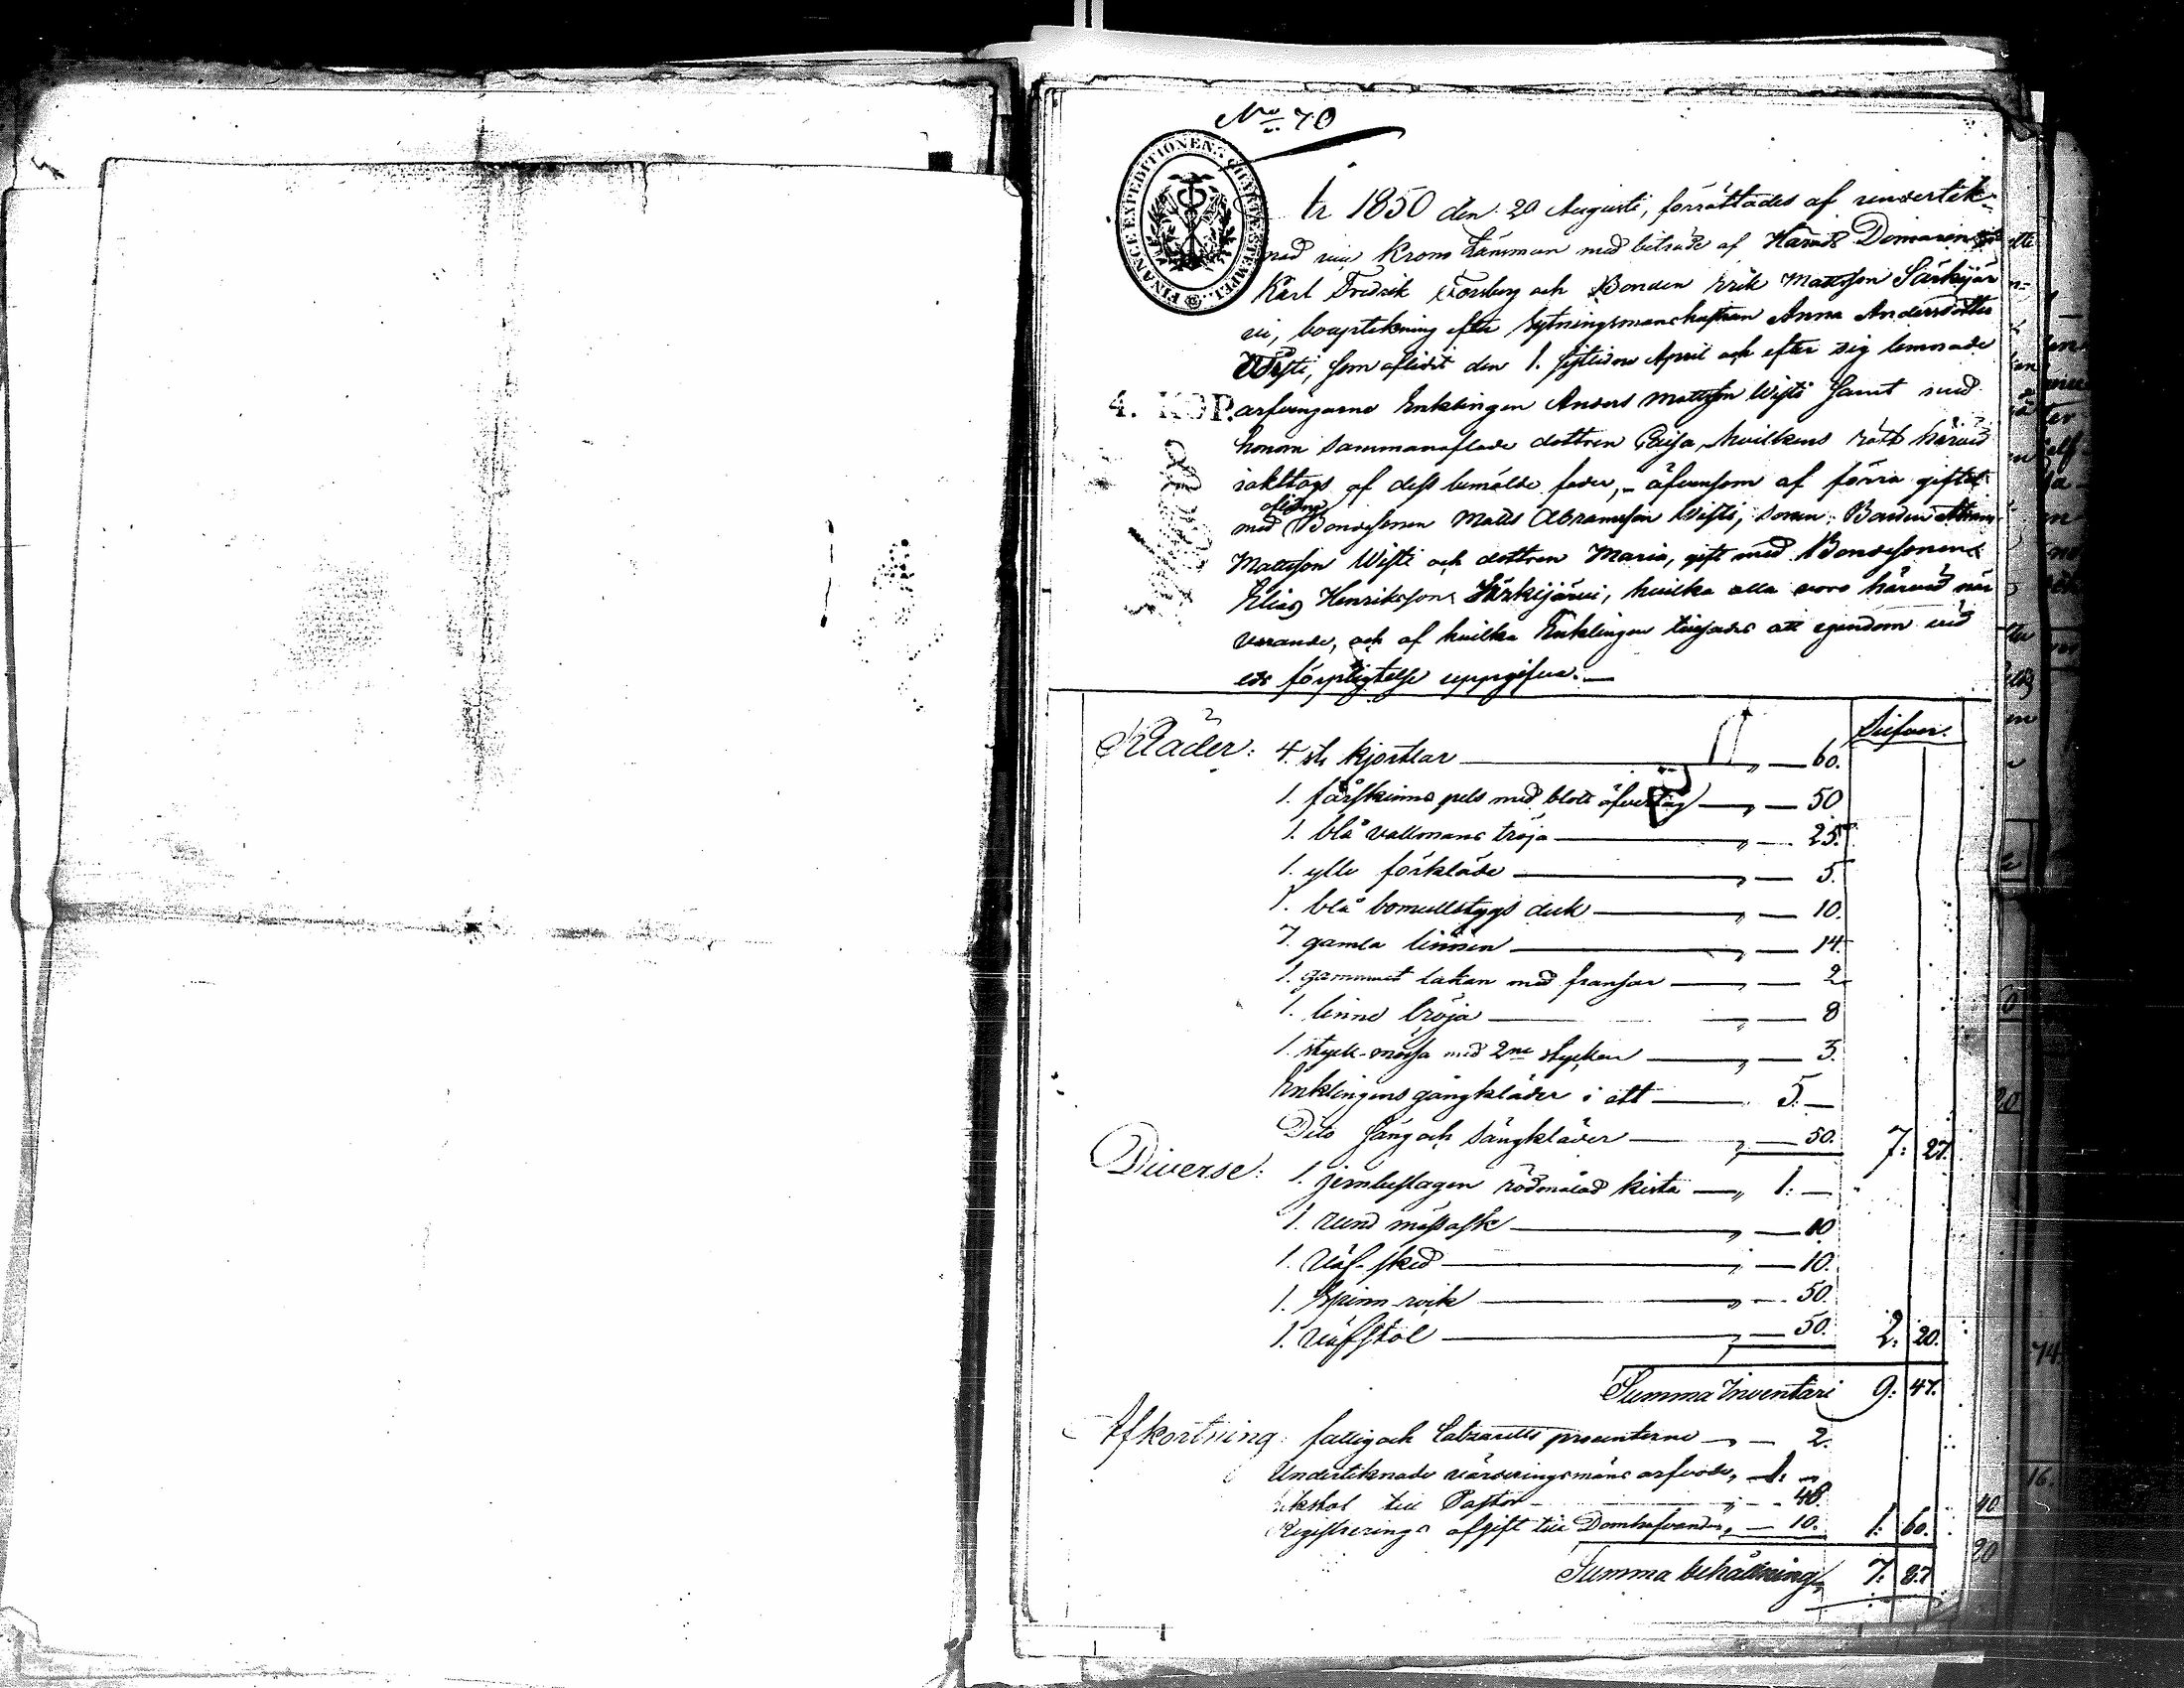 No 70
FINANCE EXPEDITIONENS CHARTÆ STEMPEL
År 1850 den 20 Augusti, förrättades af undertek-
nad Krono Länsman med biträde af Härads Domaren
Karl Fredrik Forsberg och Bonden Erik Mattsson Särkijär
vi, bouptekning efter Sytningsmanshustrun Anna Andersdotter
Wisti, som aflidit den 1. sistledne April och efter sig lemnade
4. KOP.
arfvingarne Enklingen Anders Mattsson Wisti samt med
honom sammanaflade dottren Caisa, hvilkens rätt härvid
iakttogs af dess bemälde fader, - äfvensom af förra giftet
aflidne
med Bondesonen Matts Abramsson Wisti, sonen Bonden Abram
Mattsson Wisti och dottren Maria, gift med Bondesonen
Elias Henriksson Särkijärvi, hvilka alla voro härvid när
varande, och af hvilka Enklingen tillsades att egendom vid
eds förpligtelse uppgifva. —
Silfver.
Kläder: 4. st. kjortlar — " — 60.
1. fårskinns pels med blått öfvertyg — " — 50
1. blå vallmans tröja — " — 25.
1. ylle förkläde — " — 5.
1. blå bomullstygs duk — " — 10.
7. gamla linnen — " — 14.
1. gammalt lakan med fransar — " — 2
1. linne tröja — " — 8
1. styck-mössa med 2ne stycken — " — 3.
Enklingens gångkläder i ett — 5. —
Dito säng och sängkläder — " — 50. 7: 27.
Diverse: 1. jernbeslagen rödmålad kista — " 1: —
1. rund mössask — " — 10
1. väf-sked — " — 10.
1. Spinn rock — " — 50.
1. väfstol — " — 50. 2: 20.
Summa Inventari 9: 47.
Afkortning: fattig och Lazaretts procenterne — " — 2.
Undertecknade värderingsmäns arfvode, — 1. —
likstol till Pastor — " — 48.
Registrerings afgift till Domhafvanden, — 10. 1: 60.
Summa behållning 7: 87